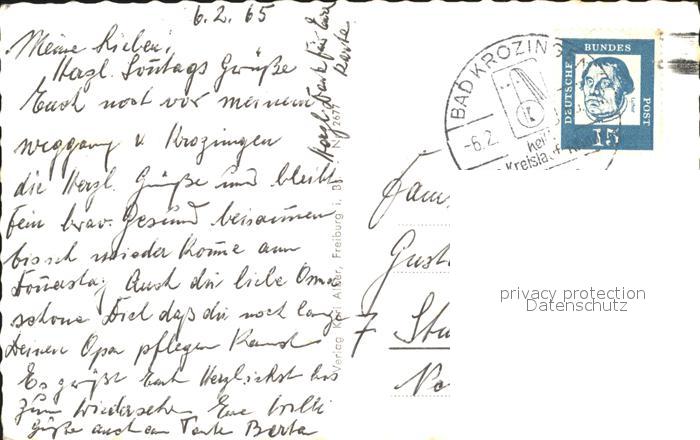 6.2.65
Meine Lieben,
Herzl. Sontags Grüße
Euch noch vor meinem
weggang v Krozingen
die Herzl. Grüße und bleibt
fein brav. Gesund beisammen
bis ich wieder kome am
Donerstag Auch dir liebe Oma
schone Dich daß du noch lange
Deinen Opa pflegen kanst
Es grüßt Euch Herzlichst bis
zum Wiedersehn Eure
Grüße auch an Tante Berta
Herzl. Dank für Eure
Karte
Verlag Karl Alber, Freiburg i. Br.
2677
BAD KROZINGEN
-6.2.
Kreislauf
DEUTSCHE
BUNDES
POST
Luther
15
Fam.
Gust
7 Stu
privacy protection
Datenschutz